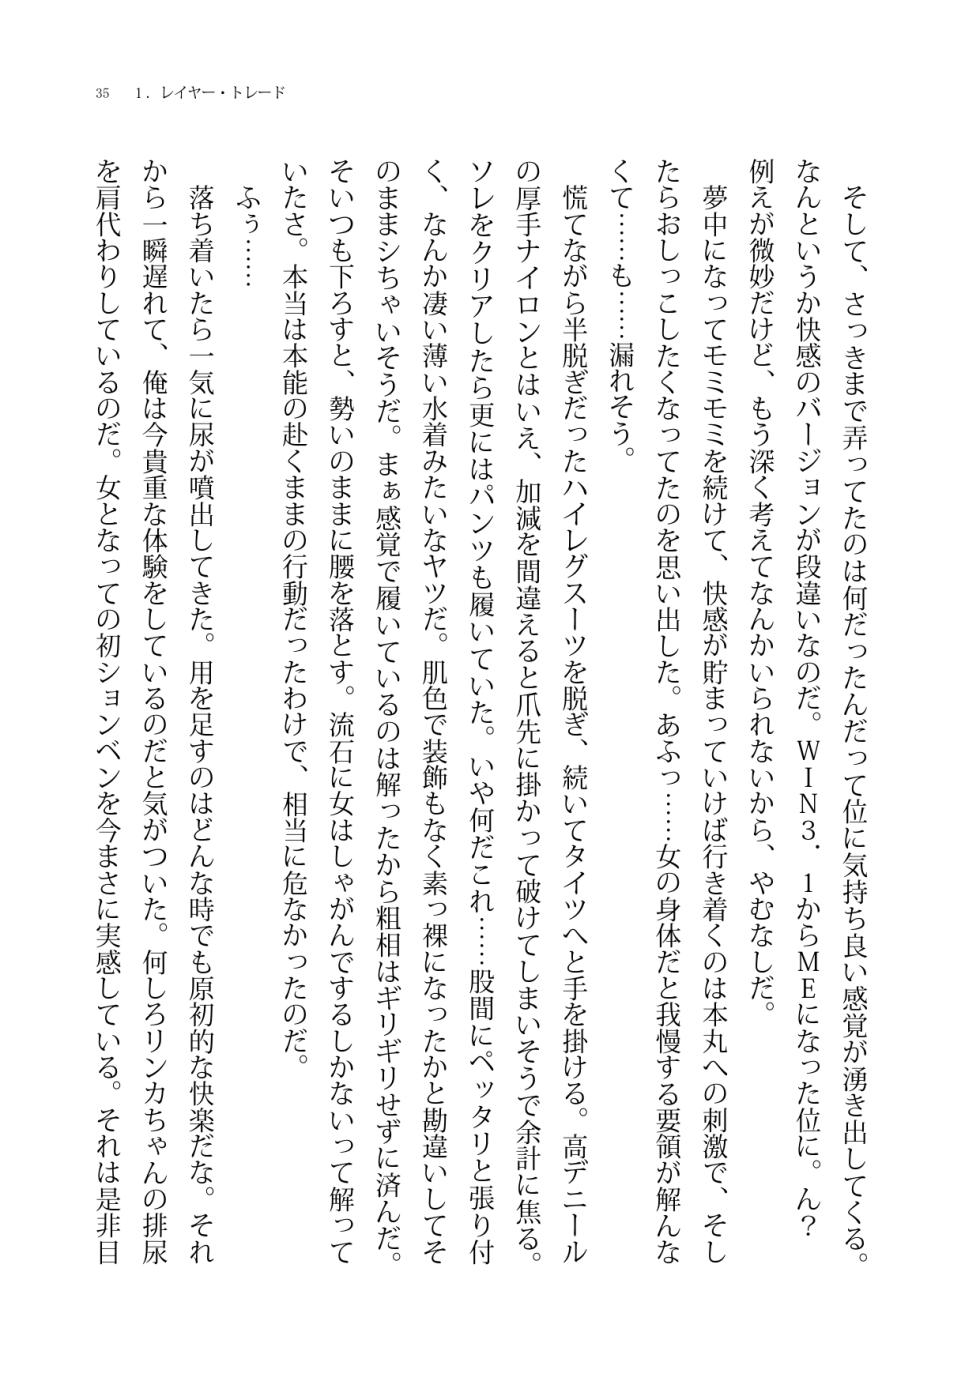 35　1．レイヤー・トレード
　そして、さっきまで弄ってたのは何だったんだって位に気持ち良い感覚が湧き出してくる。
なんというか快感のバージョンが段違いなのだ。ＷＩＮ３．１からＭＥになった位に。ん？
例えが微妙だけど、もう深く考えてなんかいられないから、やむなしだ。
　夢中になってモミモミを続けて、快感が貯まっていけば行き着くのは本丸への刺激で、そし
たらおしっこしたくなってたのを思い出した。あふっ……女の身体だと我慢する要領が解んな
くて……も……漏れそう。
　慌てながら半脱ぎだったハイレグスーツを脱ぎ、続いてタイツへと手を掛ける。高デニール
の厚手ナイロンとはいえ、加減を間違えると爪先に掛かって破けてしまいそうで余計に焦る。
ソレをクリアしたら更にはパンツも履いていた。いや何だこれ……股間にペッタリと張り付
く、なんか凄い薄い水着みたいなヤツだ。肌色で装飾もなく素っ裸になったかと勘違いしてそ
のままシちゃいそうだ。まぁ感覚で履いているのは解ったから粗相はギリギリせずに済んだ。
そいつも下ろすと、勢いのままに腰を落とす。流石に女はしゃがんでするしかないって解って
いたさ。本当は本能の赴くままの行動だったわけで、相当に危なかったのだ。
　ふぅ……
　落ち着いたら一気に尿が噴出してきた。用を足すのはどんな時でも原初的な快楽だな。それ
から一瞬遅れて、俺は今貴重な体験をしているのだと気がついた。何しろリンカちゃんの排尿
を肩代わりしているのだ。女となっての初ションベンを今まさに実感している。それは是非目